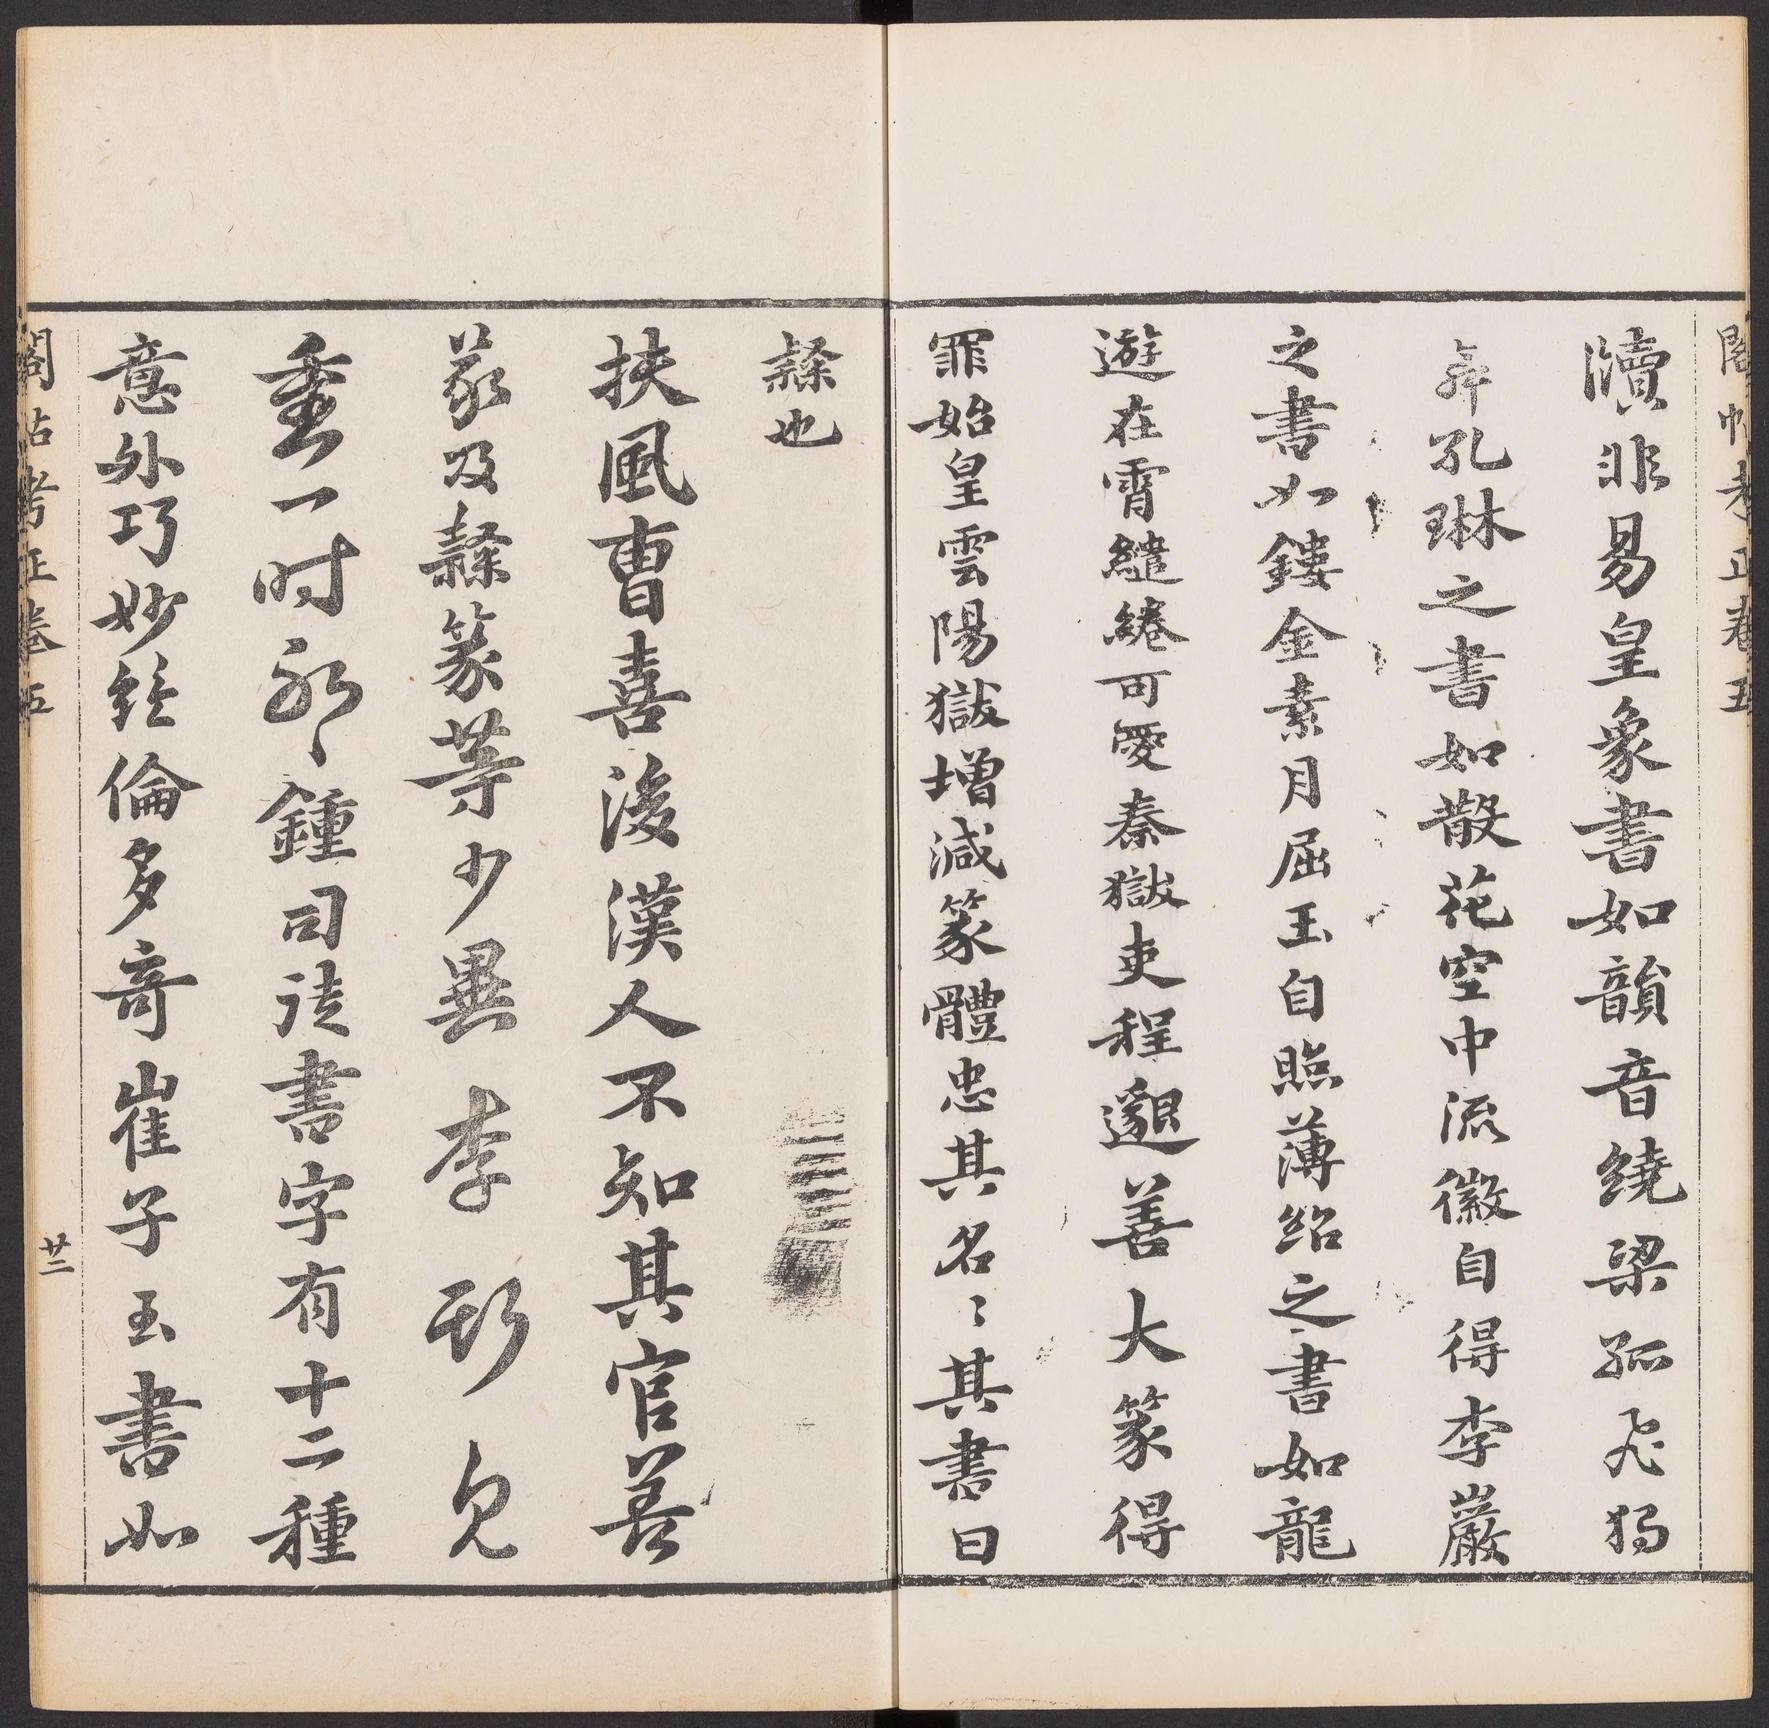 牘非易皇象書如韻音繞梁孤飛獨
弄孔琳之書如散花空中流徽自得李巖
之書如鏤金素月屈玉自照薄紹之書如龍
遊在霄繾綣可愛秦獄吏程邈善大篆得
罪始皇雲陽獄增減篆體忠其名〻其書曰
隸也
扶風曹喜後漢人不知其官善
篆及隸篆等少異李斯見
重一时永〻鍾司徒書字有十二種
意外巧妙絕倫多奇崔子玉書如
閣帖考正卷五
廿二